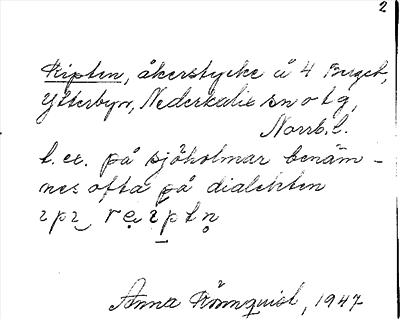 2
Kipten, åkerstycke å 4 Berget,
Ytterbyn, Nederkalix sn o tg,
Norrb. l.
t. ex. på sjöholmar benäm-
nes ofta på dialekten
Anna Rönnquist, 1947